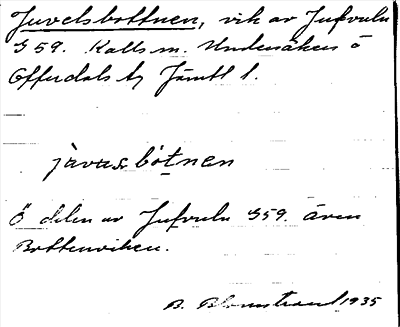 Juvelsbottnen, vik av Jufvuln
S 59. Kalls sn. Undersåkers ö
Offerdals tg Jämtl l.
javasbotnen
Ö delen av Jufvuln S 59. även
Bottenviken.
B. Blomstrand 1935